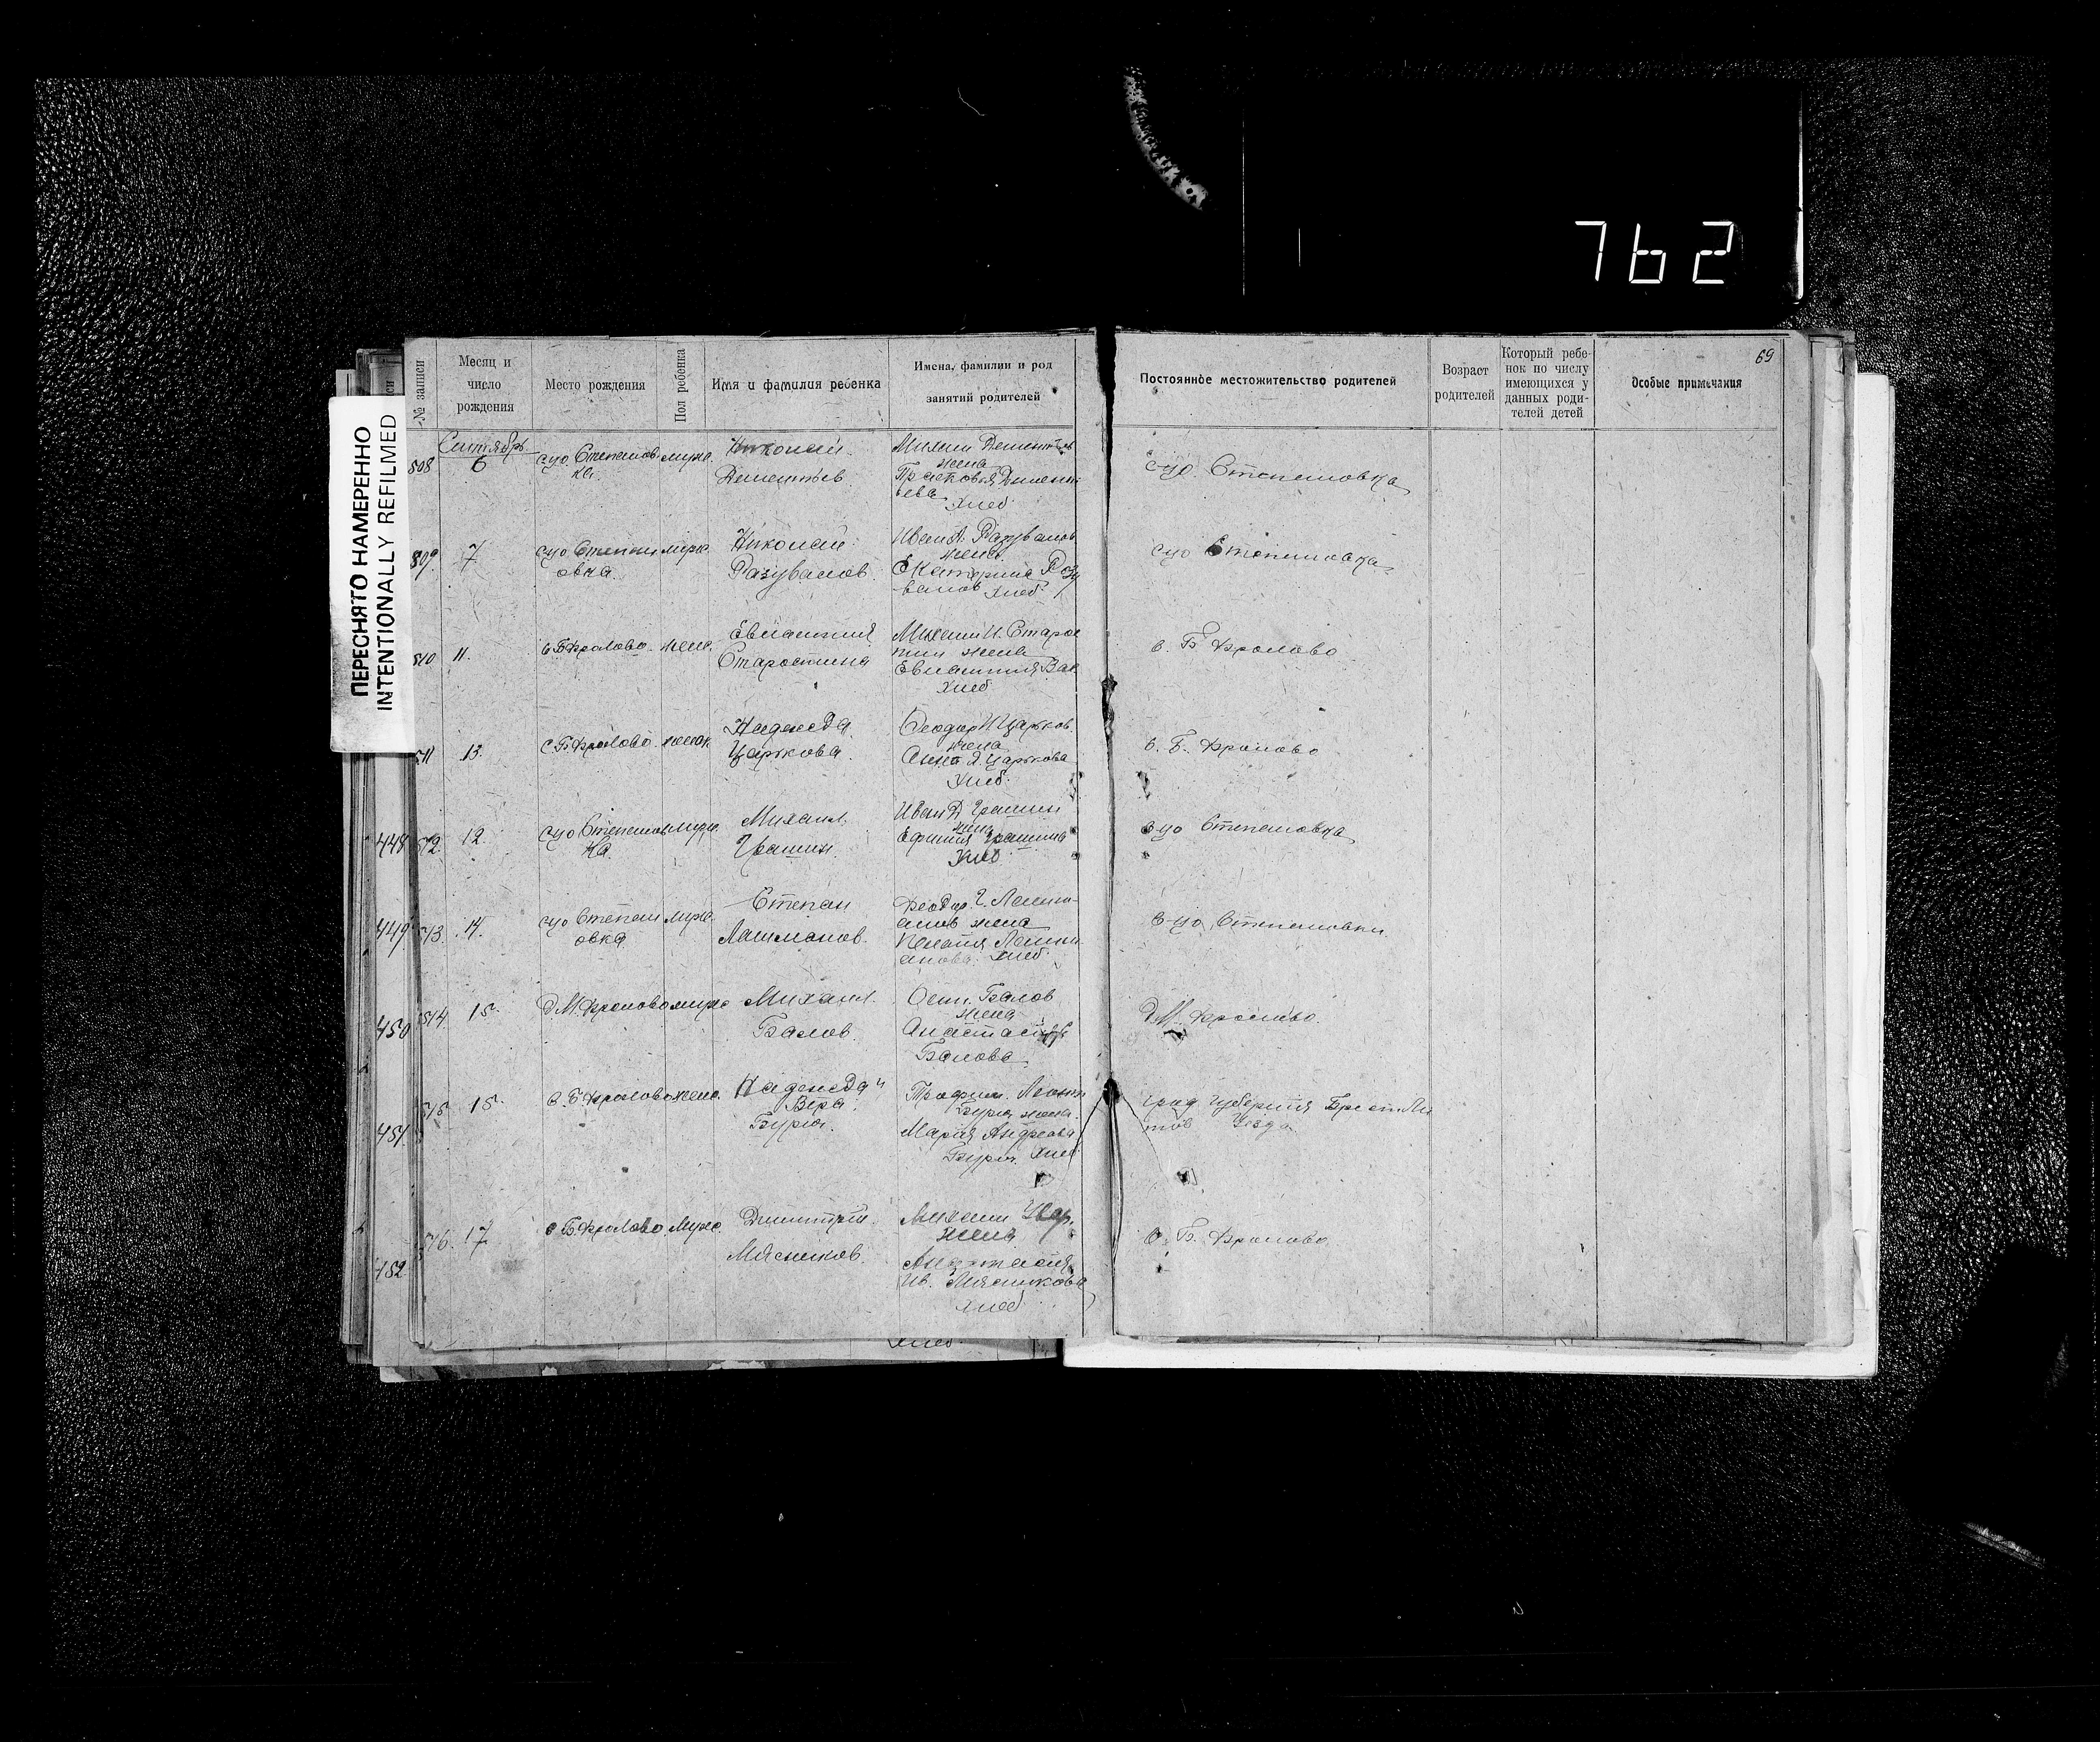 762
ПЕРЕСНЯТО НАМЕРЕННО
INTENTIONALLY REFILMED
69
№ записи
Месяц и число рождения
Место рождения
Пол ребенка
Имя и фамилия ребенка
Имена, фамилии и род занятий родителей
Постоянное местожительство родителей
Возраст родителей
Который ребенок по числу имеющихся у данных родителей детей
Особые примечания
Сентябрь
508 6
Степанов муж.
ка
Николай
Дементьев
Михаил Дементьев
жена
Прасковья Демен
ьева
Хлеб
Степановка
509 7
муж.
овка
Николай
Разувалов
Иван А. Разувалов
жена
Екатерина Разу
валов Хлеб
Степановка
510 11.
с Б Фролово. жен.
Старостина
Михаил И. Старос
тин жена
Хлеб
с. Б Фролово
511 13.
с Б. Фролово. женск
Надежда
Царькова
Феодор И Царьков
жена
Анна Я. Царькова
Хлеб.
с. Б. Фролово
448 512 12.
Степанов муж.
ка
Михаил
Грашин.
Иван Д Грашин
жена
Грашина
Хлеб
Степановка
449 513. 14.
Степан муж.
овка
Степан
Лашманов.
Феодор Г. Лашм-
анов жена
Лашм
анова. Хлеб.
Степановки
450 514 15.
Д М. Фролово муж
Михаил.
Балов.
Осип. Балов
жена
Балова
Д М. Фролово.
451 515 15.
с. Б Фролово жен.
Надежда и
Вера.
Буря.
Трофим.
Буря жена.
Мария Андреева
Буря. Хлеб
град губерния Брест Ли
тов Уезда
452 516. 17
с Б. Фролово. Муж.
Димитрий.
Мясников.
Михаил
жена
Анастасия
Ив. Мясникова
Хлеб
с. Б. Фролово
Хлеб.